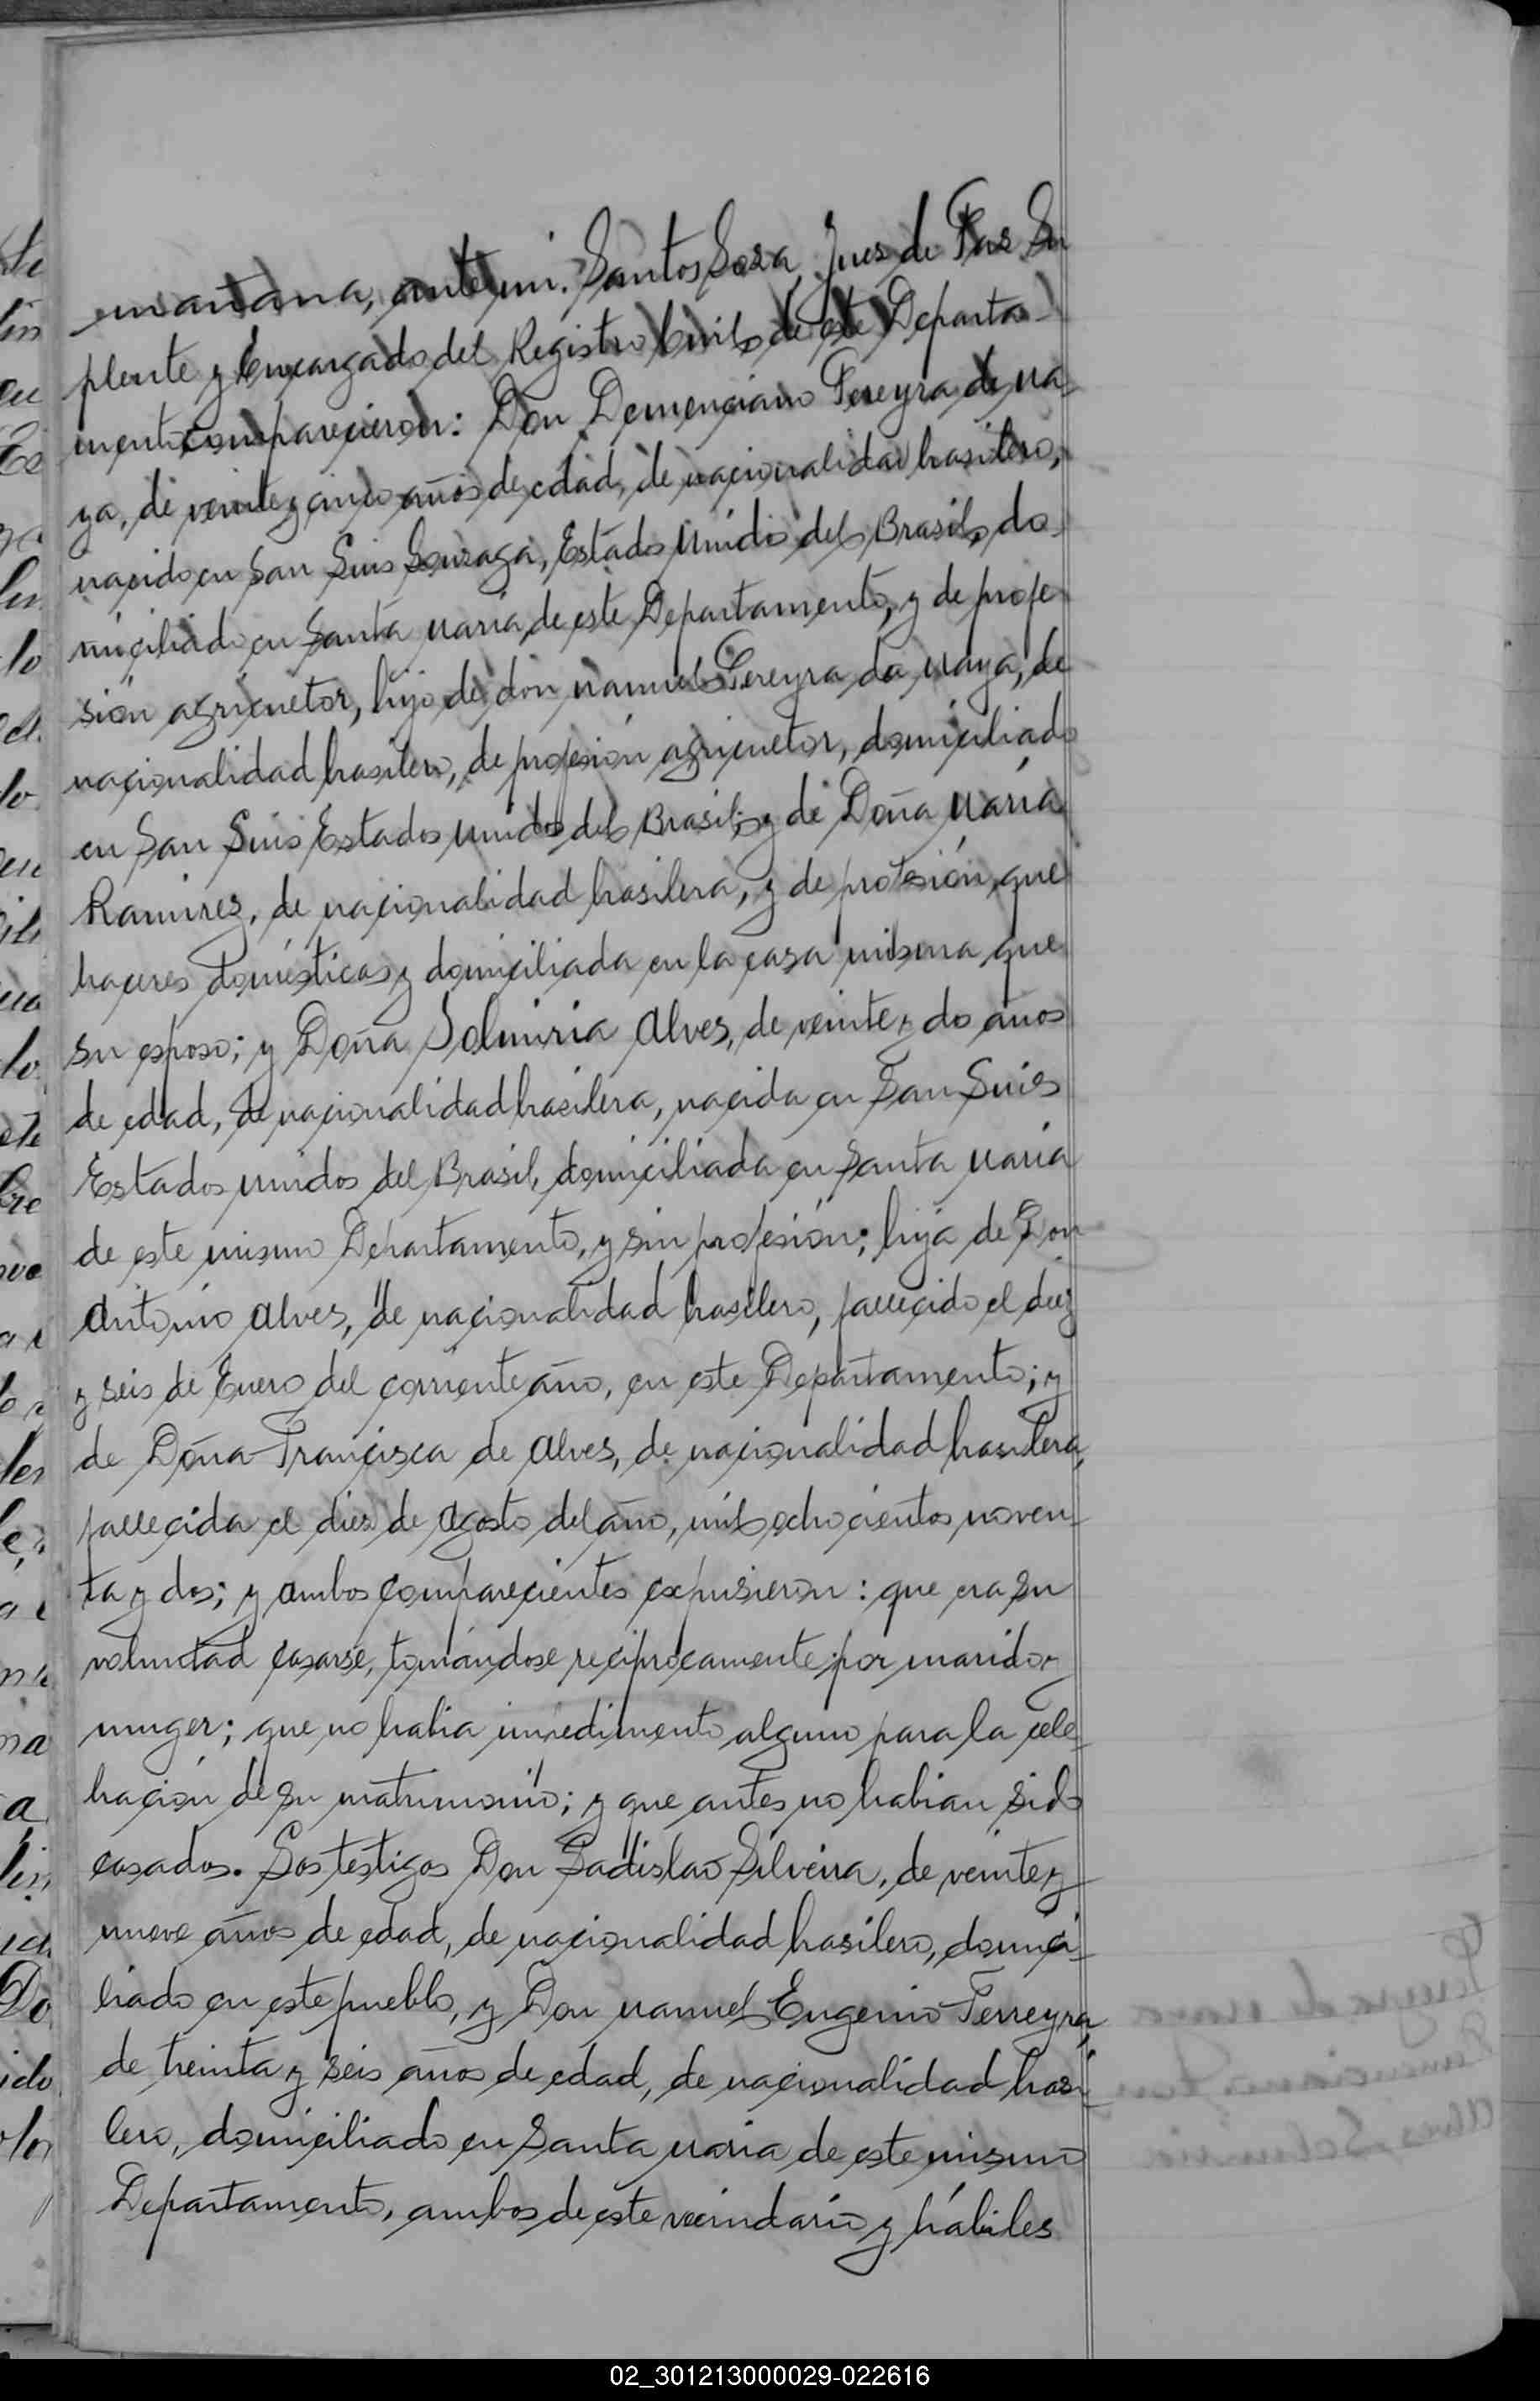 mañana, ante mi. Santos Sosa, Juez de Paz Su
plente y Encargado del Registro Civil de este Departa
mento comparecieron: Don Demenciano Pereyra de Ma
ya, de veinte y cinco años de edad, de nacionalidad brasilero,
nacido en San Luis Gonzaga, Estados Unidos del Brasil, do
miciliado en Santa Maria, de este Departamento, y de profe
sión agricultor, hijo de don Manuel Pereyra da Maya, de
nacionalidad brasilero, de profesión agricultor, domiciliado
en San Luis Estados Unidos del Brasil, y de Doña Maria
Ramirez, de nacionalidad brasilera, y de profesión, que
haceres domésticos y domiciliada en la casa misma que
su esposo; y Doña Solmiria Alves, de veinte y do años
de edad, de nacionalidad brasilera, nacida en San Luis
Estados Unidos del Brasil, domiciliada en Santa Maria
de este mismo Departamento, y sin profesión; hija de Don
Antonio Alves, de nacionalidad brasilero, fallecido el diez
y seis de Enero del corriente año, en este Departamento; y
de Doña Francisca de Alves, de nacionalidad brasilera,
fallecida el dies de Agosto del año, mil ochocientos noven
ta y dos; y ambos comparecientes expusieron: que era su
voluntad casarse, tomándose reciprocamente por marido y
muger; que no habia impedimento alguno para la cele
bración de su matrimonio; y que antes no habian sido
casados. Los testigos Don Ladislao Silveira, de veinte y
nueve años de edad, de nacionalidad brasilero, domici
liado en este pueblo, y Don Manuel Eugenio Ferreyra,
de treinta y seis años de edad, de nacionalidad brasi
lero, domiciliado en Santa Maria de este mismo
Departamento, ambos de este vecindario y hábiles
02_301213000029-022616